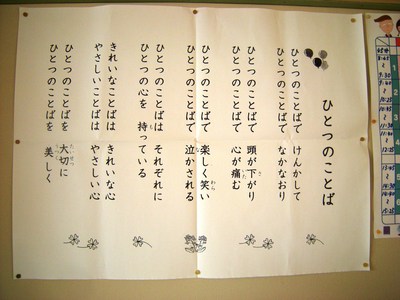 ひとつのことば
ひとつのことばで けんかして
ひとつのことばで なかなおり
ひとつのことばで 頭が下がり
ひとつのことばで 心が痛む
ひとつのことばで 楽しく笑い
ひとつのことばで 泣かされる
ひとつのことばは それぞれに
ひとつの心を 持っている
きれいなことばは きれいな心
やさしいことばは やさしい心
ひとつのことばを 大切に
ひとつのことばを 美しく